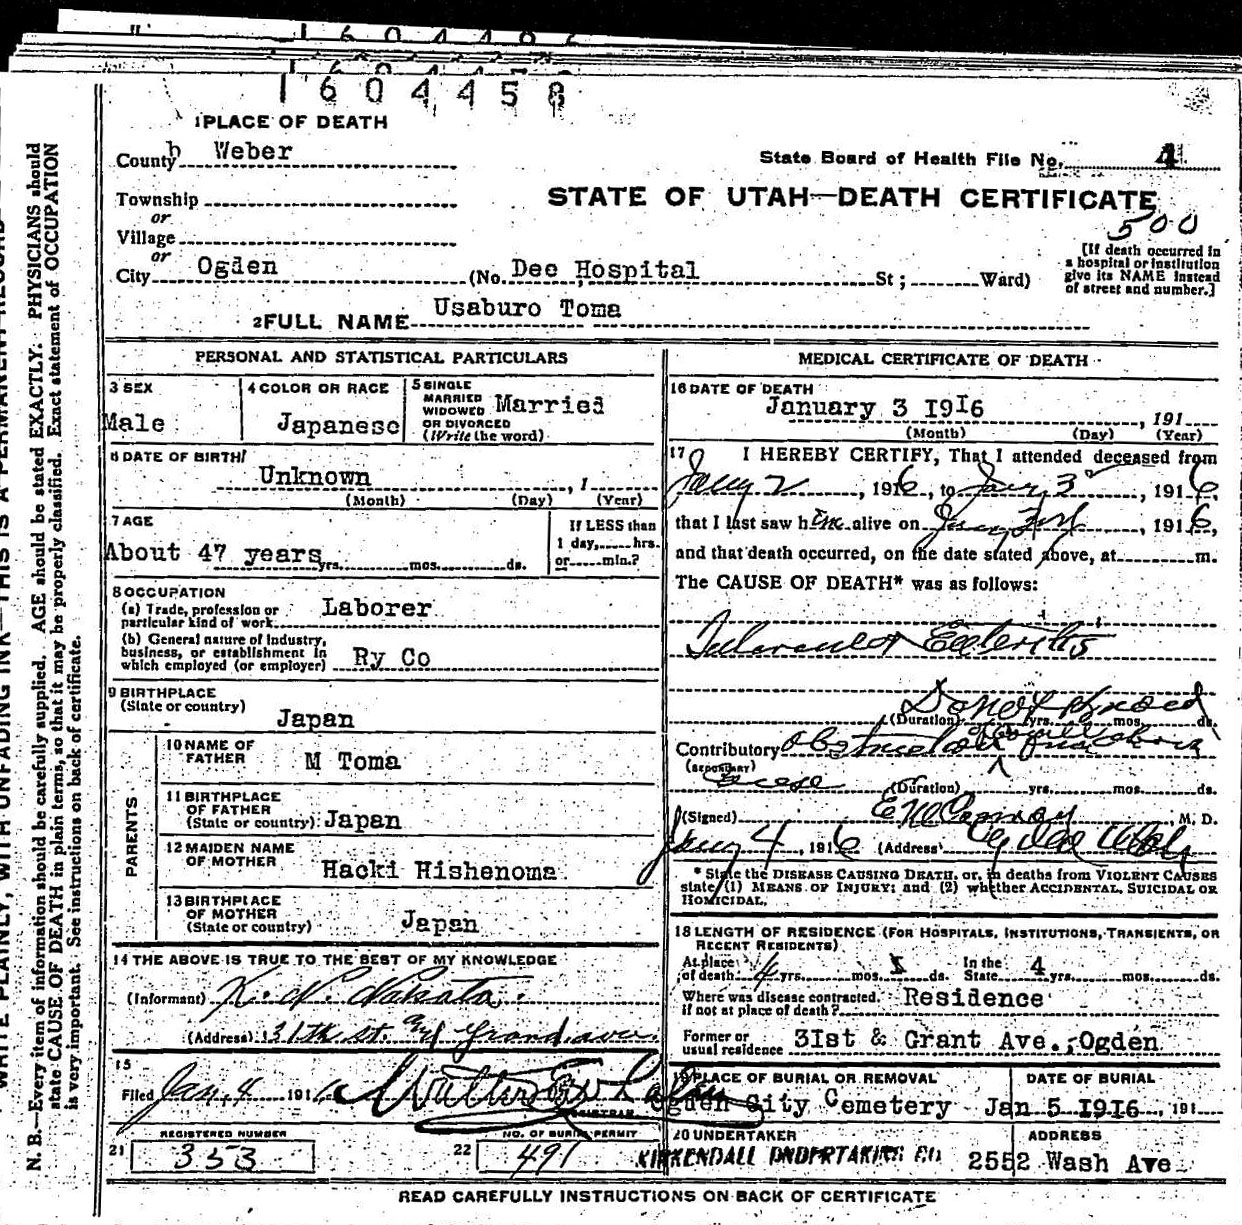 1604458
1 PLACE OF DEATH
County Weber
State Board of Health File No. 4
Township
STATE OF UTAH—DEATH CERTIFICATE
or
500
Village
or
City Ogden (No. Dee Hospital St; Ward)
[If death occurred in
a hospital or institution
give its NAME instead
of street and number.]
2 FULL NAME Usaburo Toma
PERSONAL AND STATISTICAL PARTICULARS
3 SEX
Male
4 COLOR OR RACE
Japanese
5 SINGLE
MARRIED
WIDOWED
OR DIVORCED
(Write the word)
Married
6 DATE OF BIRTH
Unknown , 1
(Month) (Day) (Year)
7 AGE
About 47 years yrs. mos. ds.
If LESS than
1 day, hrs.
or min.?
8 OCCUPATION
(a) Trade, profession or
particular kind of work Laborer
(b) General nature of industry,
business, or establishment in
which employed (or employer) Ry Co
9 BIRTHPLACE
(State or country)
Japan
PARENTS
10 NAME OF
FATHER M Toma
11 BIRTHPLACE
OF FATHER
(State or country) Japan
12 MAIDEN NAME
OF MOTHER Haoki Hishenoma
13 BIRTHPLACE
OF MOTHER
(State or country) Japan
14 THE ABOVE IS TRUE TO THE BEST OF MY KNOWLEDGE
(Informant) K. N.
(Address) 31th st. and Grand ave.
15
Filed Jan. 4 1916
REGISTRAR
REGISTERED NUMBER
21 353
NO. OF BURIAL PERMIT
22 491
MEDICAL CERTIFICATE OF DEATH
16 DATE OF DEATH
January 3 1916 , 191
(Month) (Day) (Year)
17 I HEREBY CERTIFY, That I attended deceased from
Jany 2, 1916, to Jany 3, 1916,
that I last saw him alive on , 1916,
and that death occurred, on the date stated above, at m.
The CAUSE OF DEATH* was as follows:
(Duration) yrs. mos. ds.
Contributory
(SECONDARY)
(Duration) yrs. mos. ds.
(Signed) , M. D.
Jany 4, 1916 (Address) Ogden Utah
* State the DISEASE CAUSING DEATH, or, in deaths from VIOLENT CAUSES
state (1) MEANS OF INJURY; and (2) whether ACCIDENTAL, SUICIDAL OR
HOMICIDAL.
18 LENGTH OF RESIDENCE (FOR HOSPITALS, INSTITUTIONS, TRANSIENTS, OR
RECENT RESIDENTS)
At place
of death 4 yrs. mos. 1 ds. In the
State 4 yrs. mos. ds.
Where was disease contracted.
if not at place of death? Residence
Former or
usual residence 31st & Grant Ave., Ogden
19 PLACE OF BURIAL OR REMOVAL
Ogden City Cemetery
DATE OF BURIAL
Jan 5 1916, 191
20 UNDERTAKER
KIRKENDALL UNDERTAKING CO.
ADDRESS
2552 Wash Ave
READ CAREFULLY INSTRUCTIONS ON BACK OF CERTIFICATE
N. B.—Every item of information should be carefully supplied. AGE should be stated EXACTLY. PHYSICIANS should
state CAUSE OF DEATH in plain terms, so that it may be properly classified. Exact statement of OCCUPATION
is very important. See instructions on back of certificate.